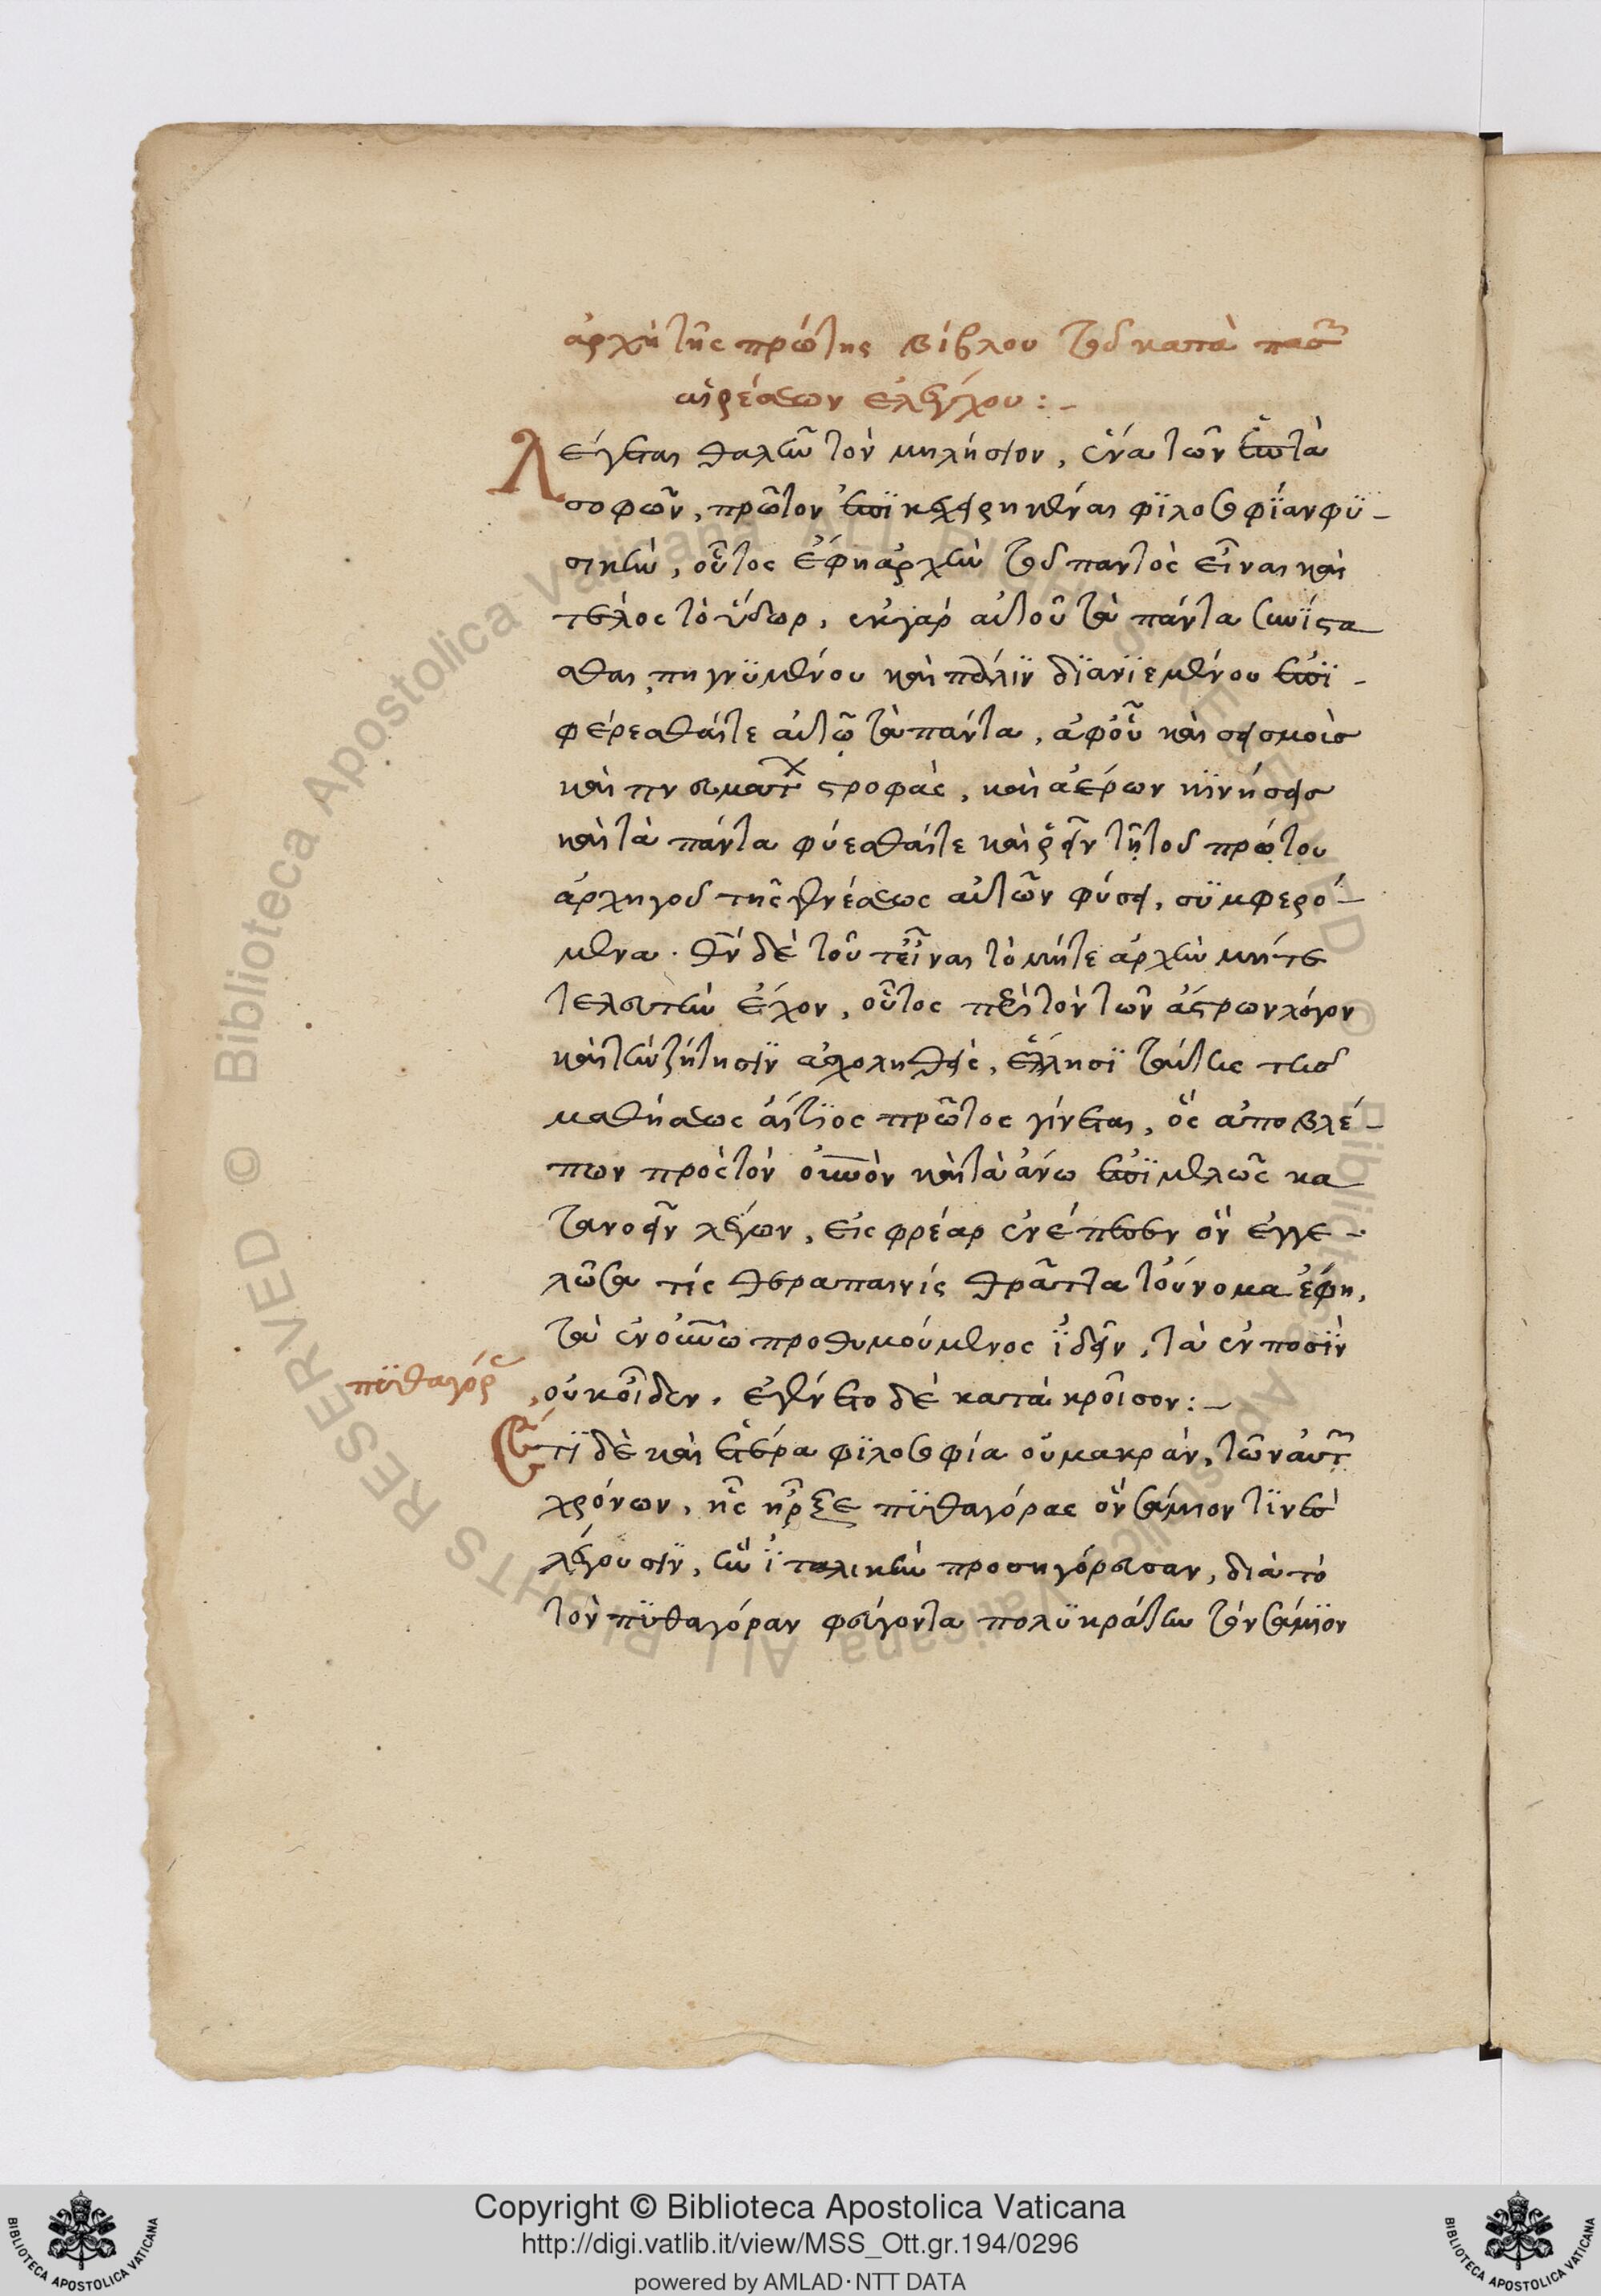 ἀρχὴ τῆς πρώτης βίβλου τοῦ κατὰ πασῶν
αἱρέσεων ἐλέγχου :-
Λέγεται θαλῆν τὸν μηλήσιον, ἕνα τῶν ἑπτὰ
σοφῶν, πρῶτον ἐπϊκεχειρηκέναι φϊλοσοφΐαν φϋ-
σικὴν, οὗτος ἔφη ἀρχὴν τοῦ παντὸς εἶναι καὶ
τέλος τὸ ὕδωρ, ἐκ γὰρ αὐτοῦ τὰ πάντα συνΐστα
σθαι πηγνϋμένου καὶ πάλϊν δϊανϊεμένου ἐπϊ-
φέρεσθαί τε αὐτῶ τὰ πάντα, ἀφ' οὗ καὶ σεισμοὺσ
καὶ πνευμάτων στροφὰς, καὶ ἀέρων κϊνήσεισ
καὶ τὰ πάντα φύεσθαί τε καὶ ῥεῖν τῆ τοῦ πρώτου
ἀρχηγοῦ τῆς γενέσεως αὐτῶν φύσει, σϋμφερό-
μενα. θεὸν δὲ τοῦτ' εἶναι τὸ μήτε ἀρχὴν μήτε
τελευτὴν ἔχον, οὗτος περὶ τὸν τῶν ἄστρων λόγον
καὶ τὴν ζήτησϊν ἀσχοληθεὶς, ἕλλησϊ ταύτης τῆσ
μαθήσεως αἴτϊος πρῶτος γίνεται, ὃς ἀποβλέ-
πων πρὸς τὸν οὐνὸν καὶ τὰ ἄνω ἐπϊμελῶς κα
τανοεῖν λέγων, εἰς φρέαρ ἐνέπεσεν ὃν ἐγγε-
λῶσα τίς θεραπαινίς θρᾶττα τοὔνομα ἔφη,
τὰ ἐν οὐνῶ προθυμούμενος ἰδεῖν, τὰ ἐν ποσῒν
οὐκ οἶδεν, ἐγένετο δὲ κατὰ κροῖσον :-
πϋθαγόρας
Ἔτϊ δὲ καὶ ἑτέρα φϊλοσοφία οὐ μακρὰν, τῶν αὐτῶν
χρόνων, ἧς ἦρξε πϋθαγόρας ὃν σάμιον τϊνὲσ
λέγουσϊν, ἣν ἰταλικὴν προσηγόρευσαν, διὰ τὸ
τὸν πϋθαγόραν φεύγοντα πολϋκράτην τὸν σάμϊον
Copyright © Biblioteca Apostolica Vaticana
http://digi.vatlib.it/view/MSS_Ott.gr.194/0296
powered by AMLAD·NTT DATA